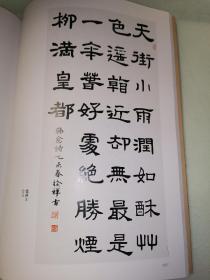 天街小雨潤如酥艸
色遥看近却無最是
一年萅好處絕勝煙
柳滿皇都
韓愈詩乙亥春徐祥書